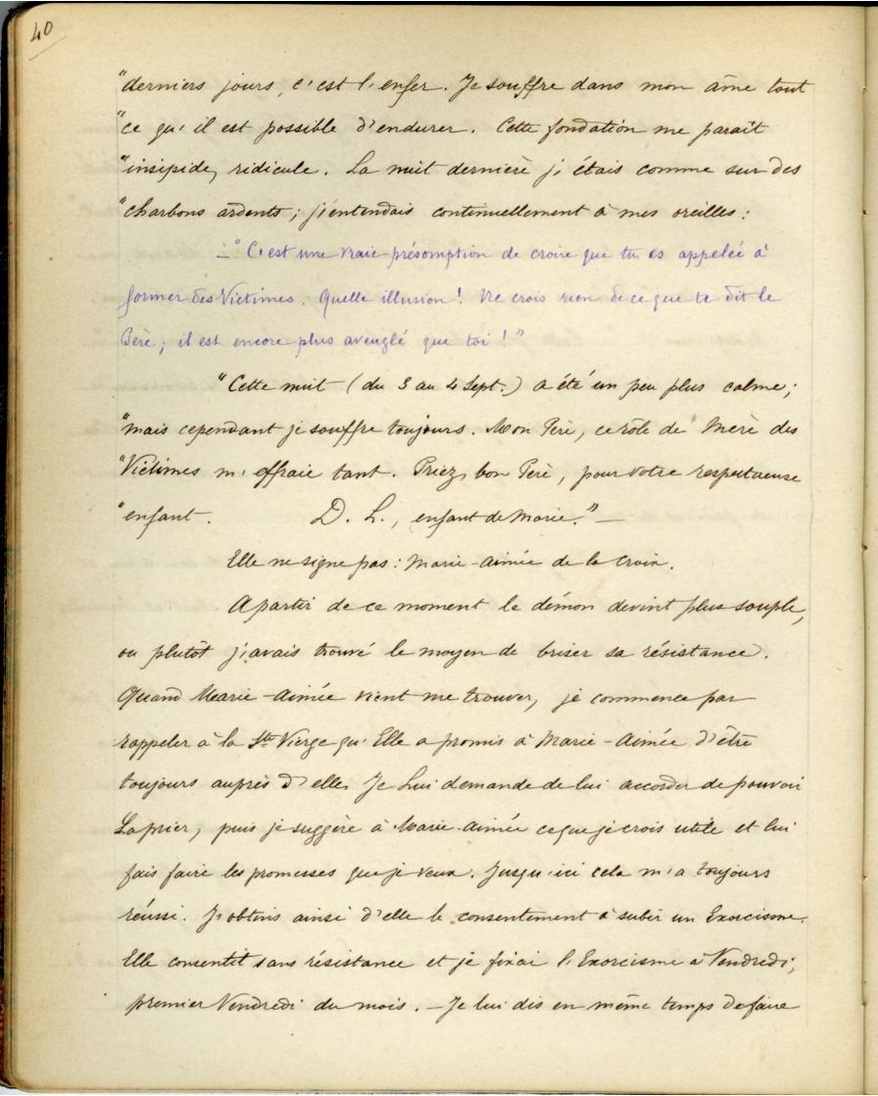 40
"derniers jours, c'est l'enfer. Je souffre dans mon âme tout
"ce qu'il est possible d'endurer. Cette fondation me paraît
"insipide, ridicule. La nuit dernière j'étais comme sur des
"charbons ardents ; j'entendais continuellement à mes oreilles :
—" C'est une vraie présomption de croire que tu es appelée à
former des Victimes. Quelle illusion ! Ne crois rien de ce que te dit le
Père ; il est encore plus aveuglé que toi ! "
"Cette nuit (du 3 au 4 Sept.) a été un peu plus calme ;
"mais cependant je souffre toujours. Mon Père, ce rôle de Mère des
"Victimes m'effraie tant. Priez, bon Père, pour votre respectueuse
"enfant. D. L., enfant de Marie." —
Elle ne signe pas : Marie-Aimée de la Croix.
A partir de ce moment le démon devint plus souple,
ou plutôt j'avais trouvé le moyen de briser sa résistance.
Quand Marie-Aimée vient me trouver, je commence par
rappeler à la Ste Vierge qu'Elle a promis à Marie-Aimée d'être
toujours auprès d'elle. Je Lui demande de lui accorder de pouvoir
La prier, puis je suggère à Marie-Aimée ce que je crois utile et lui
fais faire les promesses que je veux. Jusqu'ici cela m'a toujours
réussi. J'obtins ainsi d'elle le consentement à subir un Exorcisme.
Elle consentit sans résistance et je fixai l'Exorcisme à Vendredi,
premier Vendredi du mois. — Je lui dis en même temps de faire